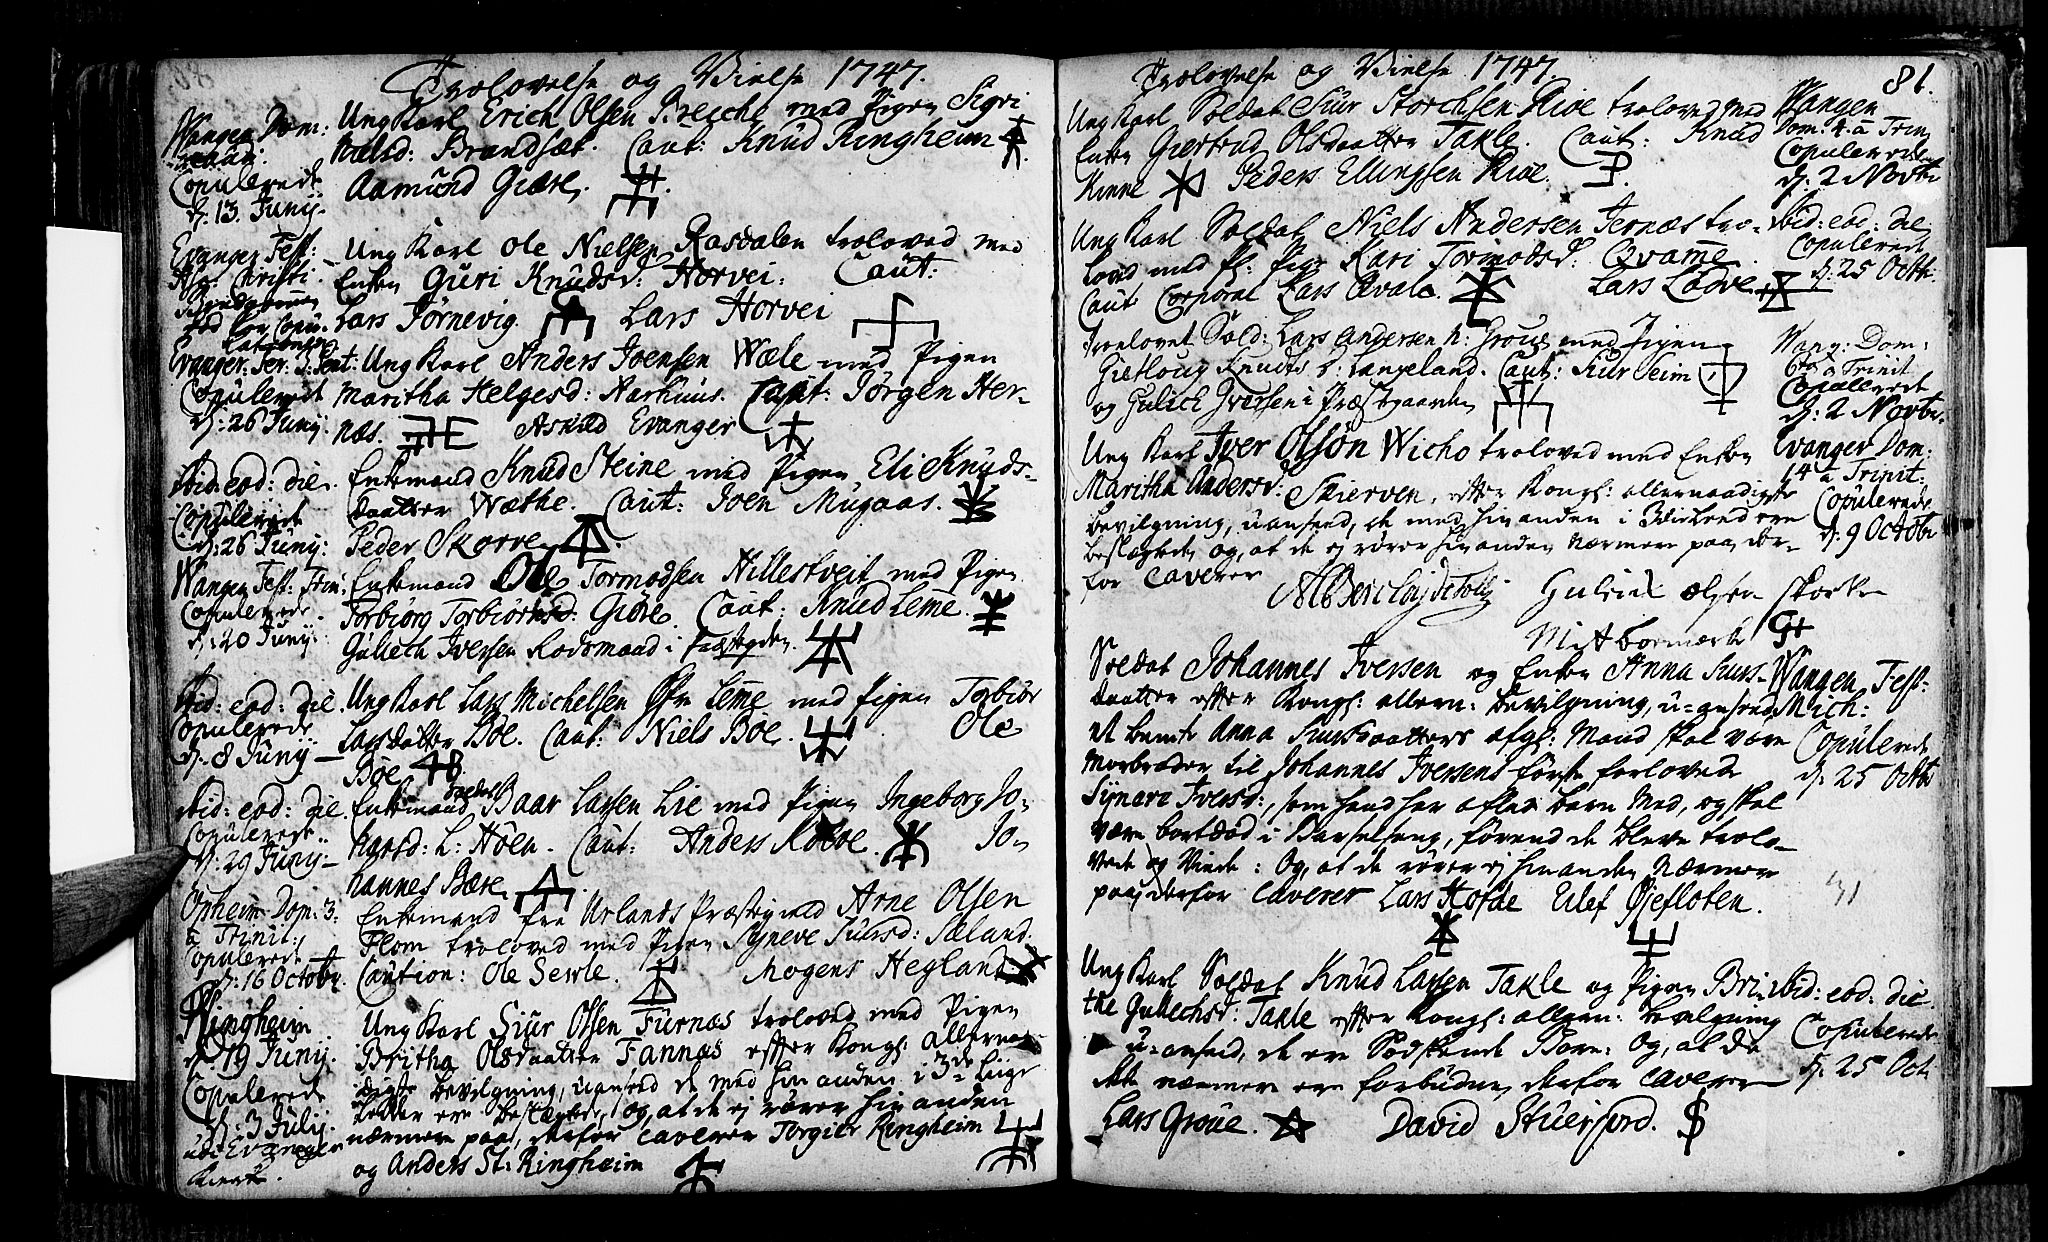 Trolovelse og Vielse 1747.
Wangen Dom:
Copulerede
d: 13 Junij.
Ung Karl Erich Olsen med Pigen Sigri
Nielsd: Brandsæt. Caut: Knud Ringheim
Aamund Giære.
Evanger Fest:
Asc: Christi.
død for Copu-
lationen
Ung Karl Ole Nielsen Rasdalen troloved med
Enken Guri Knudsd: Horvei. Caut:
Lars Jørnevig. Lars Horvei
Evanger: Fer: 3: Pent:
Copulerede
d: 26 Junij.
Ung Karl Anders Joensen Wæle med Pigen
Maritha Helgesd: Aarhuus. Caut: Jørgen Her-
næs. Askild Evanger
Ibid: eod: die.
Copulerede
d: 26 Junij:
Enkemand Knud Steine med Pigen Eli Knuds-
daatter Wæthe. Caut: Joen Mugaas.
Peder Skorve
Wangen Fest: Trin:
Copulerede
d: 20 Junij:
Enkemand Ole Tormodsen Hillestveit med Pigen
Torbiørg Torbiørnsd: Giøre. Caut: Knud Leme.
Gulich Iversen Rodsmand i
Ibid: eod: die.
Copulerede
d: 8 Junij
Ung Karl Lars Michelsen Øfre Leme med Pigen Torbiør
Larsdatter Bøe. Caut: Niels Bøe. Ole
Bøe
Ibid: eod: die.
Copulerede
d: 29 Junij
Enkemand Baar Lassen Lie med Pigen Ingeborg Jo-
hansd: L: Høen. Caut: Anders Kolve. Jo-
hannes Bære
Opheim Dom: 3:
a Trinit:
Copulerede
d: 16 Octobr.
Enkemand fra Urlands Præsteg med Arne Olsen
Flom troloved med Pigen Syneve Siursd: Sæland.
Caution: Ole Sewle. Mogens Hegland
Ringheim
d: 19 Junij.
Copulerede
d: 3 Julij.
udi Evanger
Kirke.
Ung Karl Siur Olsen Furnæs troloved med Pigen
Britha Olsdaatter Fannæs efter Kongl: allernaa-
digste bevilgning, uanseed de med hinanden i 3die Liige
Leed ere beslægtede, og, at de ej rører hinanden
nærmere paa, derfor caverer Torgier Ringheim
og Anders St: Ringheim
Trolovelse og Vielse 1747.
81.
Ung Karl Soldat Siur Storchsen Rioe troloved med
Enken Giertrud Olsdaatter Takle. Caut: Knud
Kinne Peders Ellingsen Rioe.
Wangen
Dom: 4 a Trin
Copulerede
d: 2 Novbr
Ung Karl Soldat Niels Andersen Jernæs tro-
loved med Pigen Kari Tormodsd: Qvamme.
Caut Corporal Lars Qvale. Lars Lødve
Ibid: eod: die
Copulerede
d: 25 Octb:
Trolovet Sold: Lars Andersen N: Groue med Pigen
Giertloug Knudts D: Langeland. Caut: Siur Seim
og Gulich Iversen i Præstgaarden
Wang: Dom:
6ta a Trinit
Copulerede
d: 2 Novbr.
Ung Karl Iver Olsøn Wicho troloved med Enken
Maritha Andersd: Skierven, efter Kongl: allernaadigste
bevilgning, uanseed, de med hinanden i ere
beslægtede og, at de ej rører hinanden nærmere paa, der-
for caverer
Gulich Olsen Skorve
Mit bormærke
Evanger Dom:
14 a Trinit:
Copulerede
d: 9 Octobr
Soldat Johannes Iversen og Enken Anna Siurs-
daatter efter Kongl: allern: bevilgning, u-anseed
at bemte Anna Siursdaatters afg: Mand skal være
Morbroder til Johannes Iversens første forlovede
Synavi Iversd:, som hand har aflet barn med, og skal
være bortdød i Barselseng, førend de bleve trolo-
vede og Viede: Og, at de rører ej hinanden nærmere
paa, derfor caverer Lars Hofde Elef Gjefloten.
Wangen Fest:
Mich:
Copulerede
d: 25 Octbr
Ung Karl Soldat Knud Lassen Takle og Pigen Bri-
the Gullechsd: Takle efter Kongl: allern: bevilgning
u-anseed, de ere Sødskende Børn: Og, at de
ikke nærmere ere forbudne, derfor caverer
Lars Groue. David Stuersfiord.
Ibid: eod: die
Copulerede
d: 25 Oct: